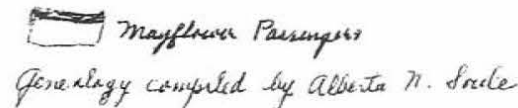 Mayflower Passengers
Genealogy compiled by Alberta N. Soule